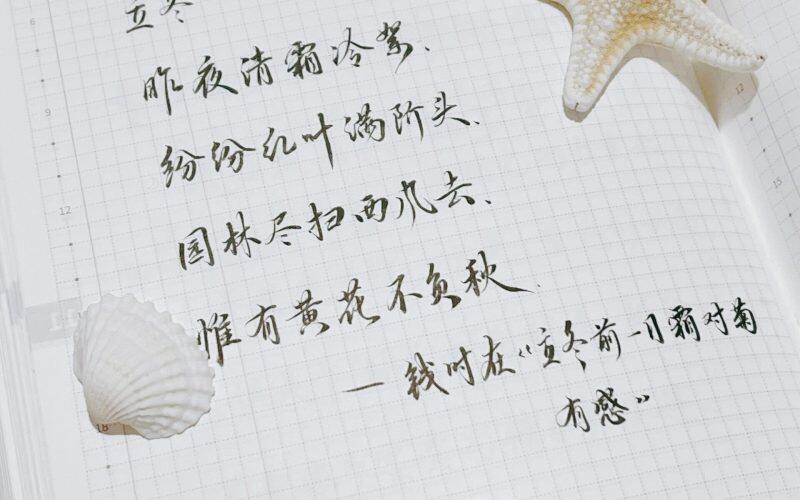 立冬
昨夜清霜冷絮、
纷纷红叶满阶头、
园林尽扫西风去、
惟有黄花不负秋.
— 钱时在《立冬前一日霜对菊
有感》
9
12
18
12
15